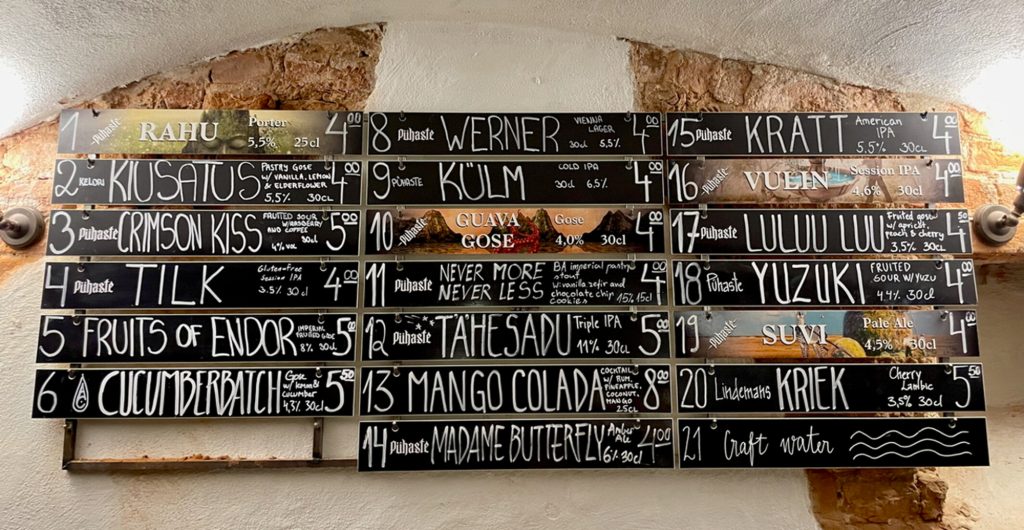 1 Pühaste RAHU Porter 5,5% 25cl 4⁰⁰
2 KIUSATUS PASTRY GOSE W/ VANILLA, LEMON & ELDERFLOWER 5,5% 30cl 4⁰⁰
3 Pühaste CRIMSON KISS FRUITED SOUR AND COFFEE 4% VOL 30cl 5⁰⁰
4 Pühaste TILK Gluten-free Session IPA 3.5% 30cl 4⁰⁰
5 FRUITS OF ENDOR IMPERIAL FRUITED GOSE 8% 30cl 5⁵⁰
6 CUCUMBERBATCH Gose w/ lemon & cucumber 4,3% 30cl 5⁵⁰
8 Pühaste WERNER VIENNA LAGER 30cl 5.5% 4⁰⁰
9 PÜHASTE KÜLM COLD IPA 30cl 6.5% 4⁰⁰
10 Pühaste GUAVA GOSE Gose 4,0% 30cl 4⁰⁰
11 Pühaste NEVER MORE NEVER LESS BA imperial pastry stout w: vanilla zefir and chocolate chip cookies 15% 15cl 4⁰⁰
12 Pühaste TÄHESADU Triple IPA 11% 30cl 5⁰⁰
13 MANGO COLADA COCKTAIL W/ RUM, PINEAPPLE, COCONUT, MANGO 25cl 8⁰⁰
14 Pühaste MADAME BUTTERFLY Amber Ale 6% 30cl 4⁰⁰
15 Pühaste KRATT American IPA 5.5% 30cl. 4⁰⁰
16 Pühaste VULIN Session IPA 4,6% 30cl 4⁰⁰
17 Pühaste LULUU LUU Fruited gose w/ apricot, peach & cherry 3.5% 30cl 4⁵⁰
18 Pühaste YUZUKI FRUITED SOUR W/ YUZU 4.4% 30cl 4⁰⁰
19 Pühaste SUVI Pale Ale 4,5% 30cl 4⁰⁰
20 Lindemans KRIEK Cherry Lambic 3,5% 30cl 5⁵⁰
21 Craft water